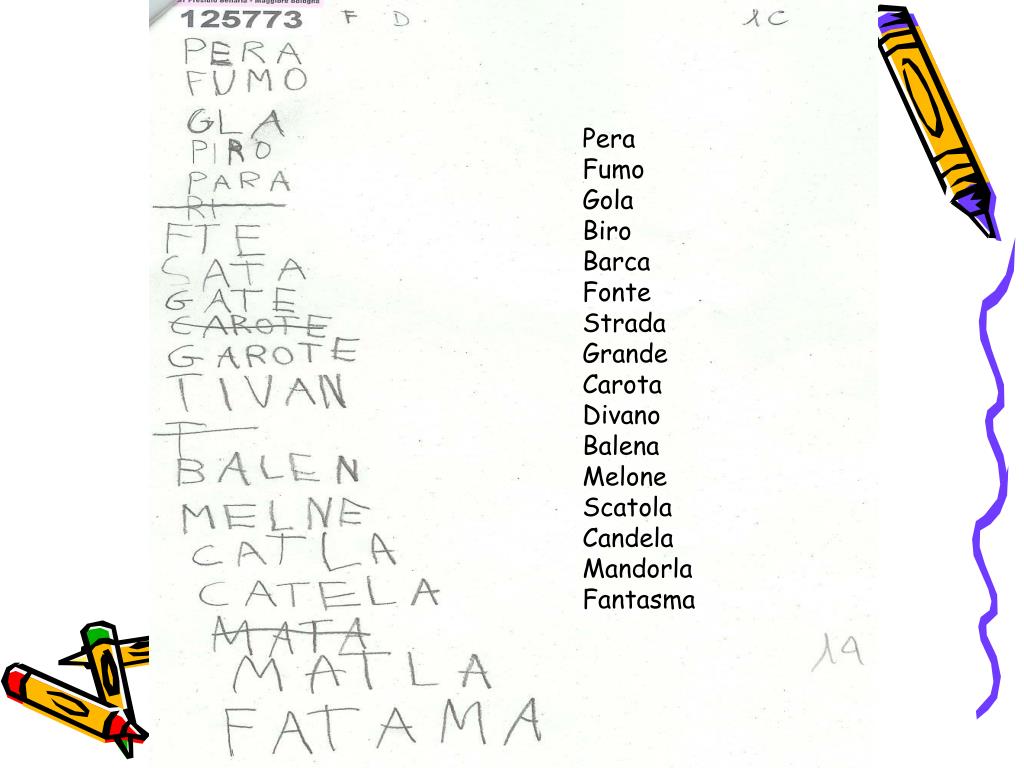 125773 F D. 1C
PERA
FUMO
GLA
PIRO
PARA
RI
FTE
SATA
GATE
CAROTE
GAROTE
TIVAN
T
BALEN
MELNE
CATLA
CATELA
MATA
MATLA
FATAMA
19
Pera
Fumo
Gola
Biro
Barca
Fonte
Strada
Grande
Carota
Divano
Balena
Melone
Scatola
Candela
Mandorla
Fantasma